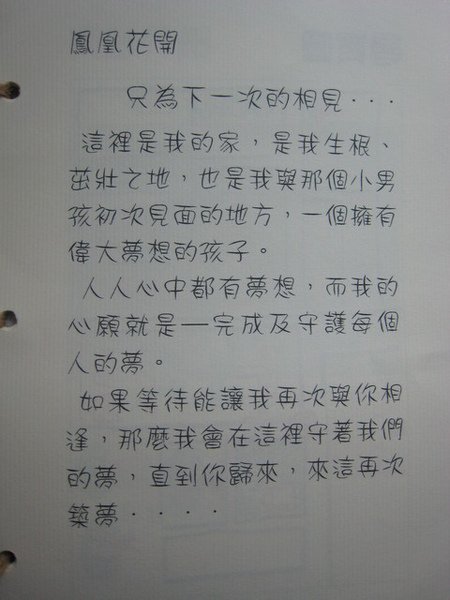 鳳凰花開
只為下一次的相見...
這裡是我的家，是我生根、
茁壯之地，也是我與那個小男
孩初次見面的地方，一個擁有
偉大夢想的孩子。
人人心中都有夢想，而我的
心願就是—完成及守護每個
人的夢。
如果等待能讓我再次與你相
逢，那麼我會在這裡守著我們
的夢，直到你歸來，來這再次
築夢....